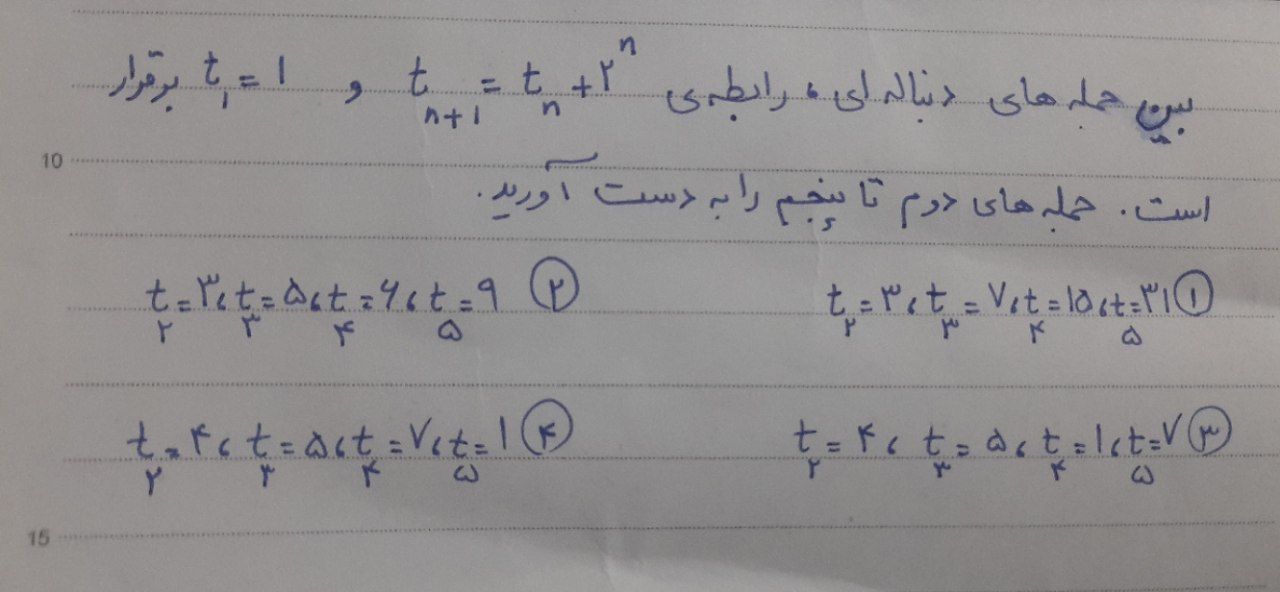 بین جمله های دنباله ای، رابطه ی tₙ₊₁ = tₙ + ۲ⁿ و t₁ = ۱ برقرار
10
است. جمله های دوم تا پنجم را به دست آورید.
① t₂ = ۳، t₃ = ۷، t₄ = ۱۵، t₅ = ۳۱
② t₂ = ۳، t₃ = ۵، t₄ = ۶، t₅ = ۹
③ t₂ = ۴، t₃ = ۵، t₄ = ۱، t₅ = ۷
④ t₂ = ۴، t₃ = ۵، t₄ = ۷، t₅ = ۱
15